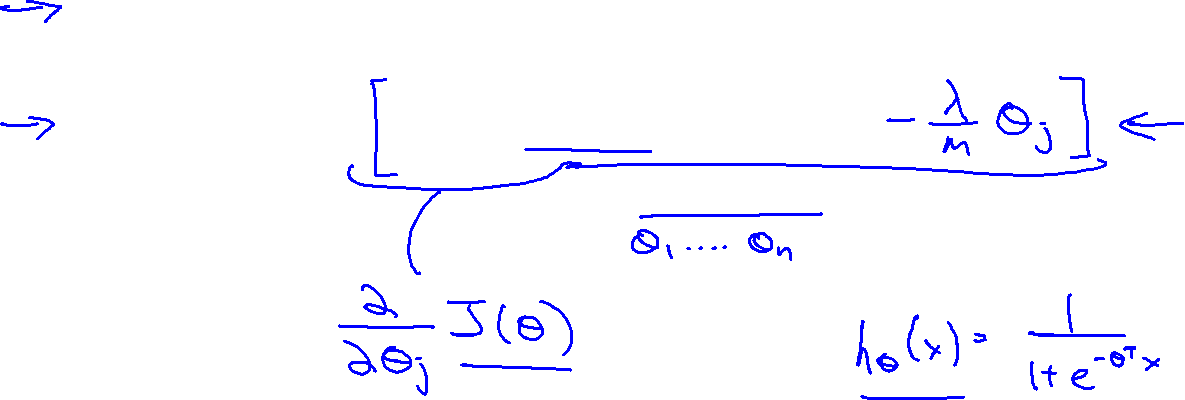 →
→ [ - λ/m θj ] ←
θ1 .... θn
∂/∂θj J(θ)
hθ(x) = 1/(1+e^(-θᵀx))